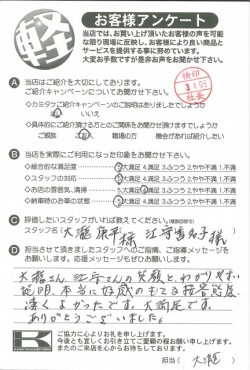 軽
お客様アンケート
当店では、お買い上げ頂いたお客様の声を可能
な限り現場に反映し、お客様により良い商品と
サービスを提供する事に努めています。
大変お手数ですが是非お声をお聞かせ下さい。
検印
1.05
社長
A 当店はご紹介を大切にしております。
ご紹介キャンペーンについてお聞かせ下さい。
◇カミタケご紹介キャンペーンのご説明はありましたでしょうか
はい いいえ
◇具体的にご紹介頂ける方とのご関係をお聞かせ頂けますでしょうか
ご親族 ご友人 職場の方 機会があれば紹介したい
B 当店を実際にご利用になった印象をお聞かせ下さい。
◇総合的な満足度 5大満足 4.満足 3.ふつう 2.やや不満 1.不満
◇スタッフの対応 5大満足 4.満足 3.ふつう 2.やや不満 1.不満
◇お店の雰囲気、清掃 5大満足 4.満足 3.ふつう 2.やや不満 1.不満
◇納車時のお車の状態 5大満足 4.満足 3.ふつう 2.やや不満 1.不満
C 評価したいスタッフがいれば教えてください。
スタッフ名( 大瀧 康平様 江守 様
D 担当させて頂きましたスタッフへのご指摘、ご指導メッセージを
お願いします。応援メッセージもぜひお願いします。
大瀧さん 江守さんの笑顔と、わかりやすい
説明、本当に好感のもてる接客態度
凄くよかったです。大満足です。
ありがとうございました。
K
ご協力に心よりお礼を申し上げます。
今後とも宜しくお引き立てご愛顧の程お願い申し上げます。
またのご来店を心からお待ちしております。
担当( 大瀧 )